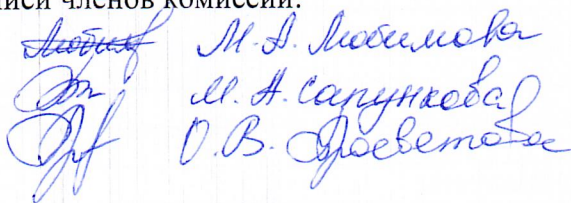 писи членов комиссии:
М. А. Любимова
М. А. Сапункова
О. В. Просветова